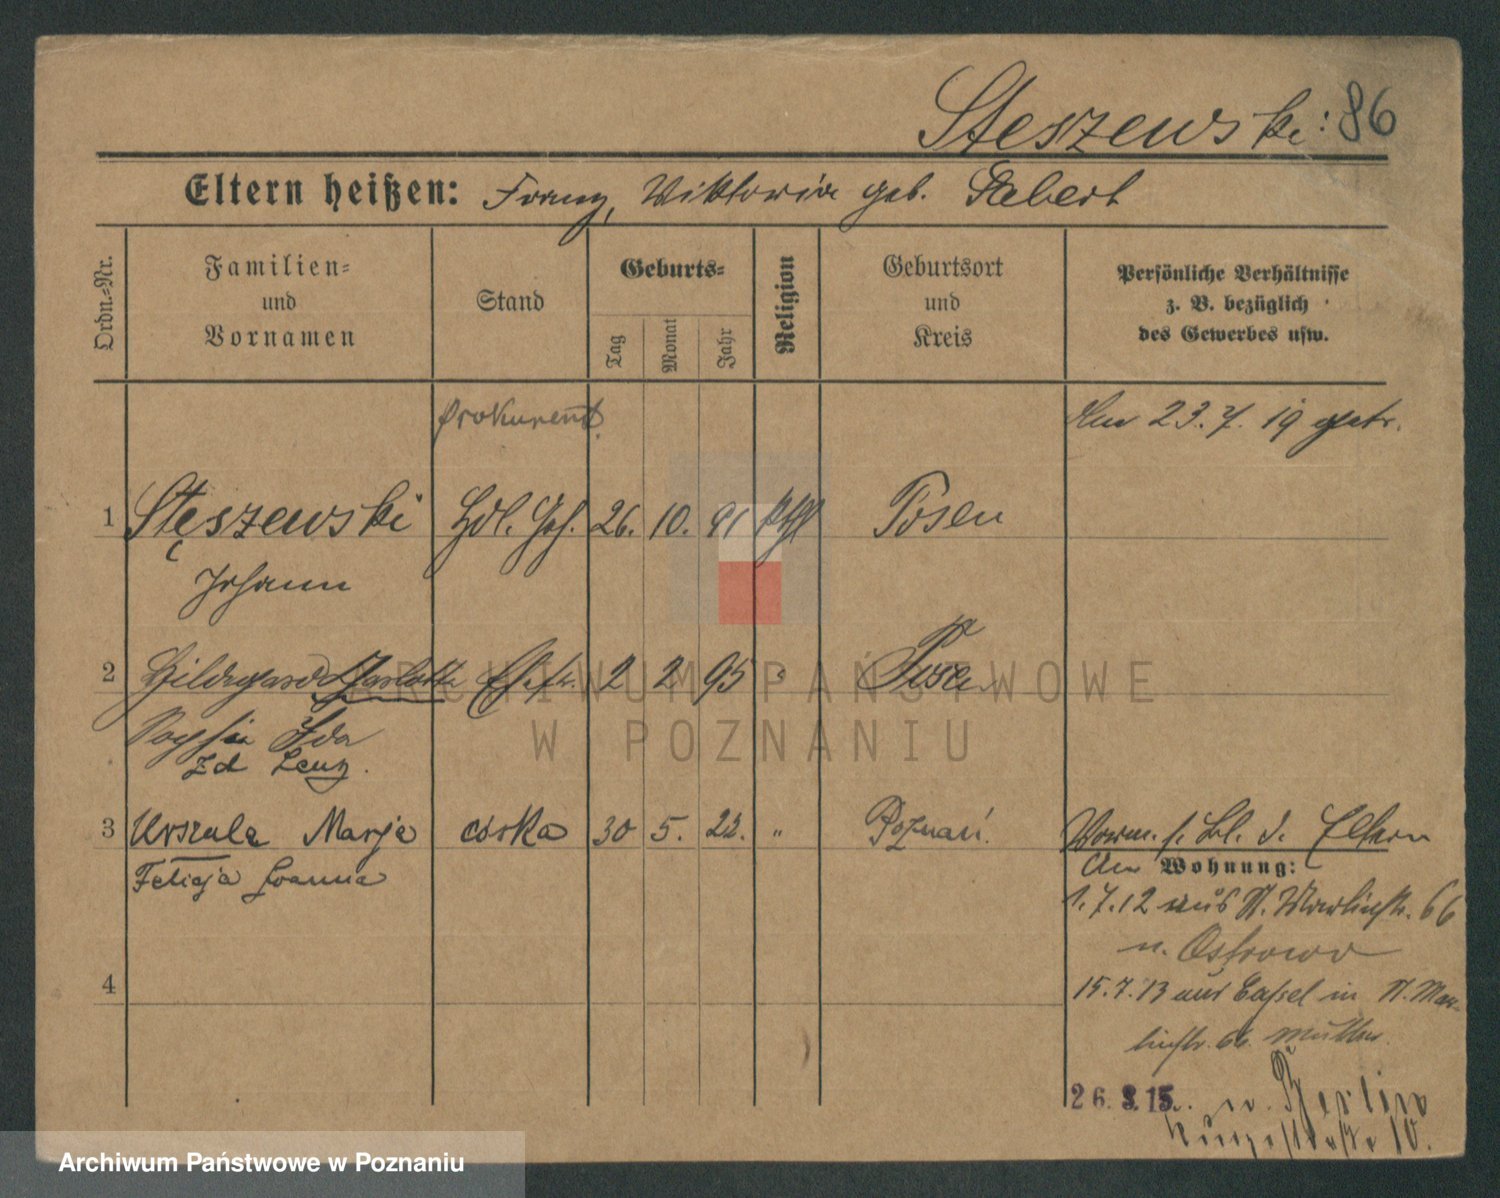 Steszewski: 86
Eltern heißen: Franz, Wiktoria geb. Tabert
Ordn.-Nr.
Familien-
und
Vornamen
Stand
Geburts-
Tag
Monat
Jahr
Religion
Geburtsort
und
Kreis
Persönliche Verhältnisse
z. B. bezüglich
des Gewerbes usw.
Prokurent. Am 23.7.19 getr.
1 Stęszewski Hdl. Geh. 26. 10. 91 kthl Posen
Johann
2 Hildegard Charlotte Ehefr. 2 2 95 " Posen
Sophie Ida
zd Lenz.
3 Urszula Marja córka 30 5. 22. " Poznań.
Felicja Joanna
Vorm. s. Bl. d. Eltern
Am Wohnung:
1.7.12 aus St. Martinstr. 66
n. Ostrowo
15.7.13 aus Cassel in St. Mar-
tinstr. 66. Mutter.
4
26. 3. 15. n. Berlin
10.
ARCHIWUM PAŃSTWOWE
W POZNANIU
Archiwum Państwowe w Poznaniu